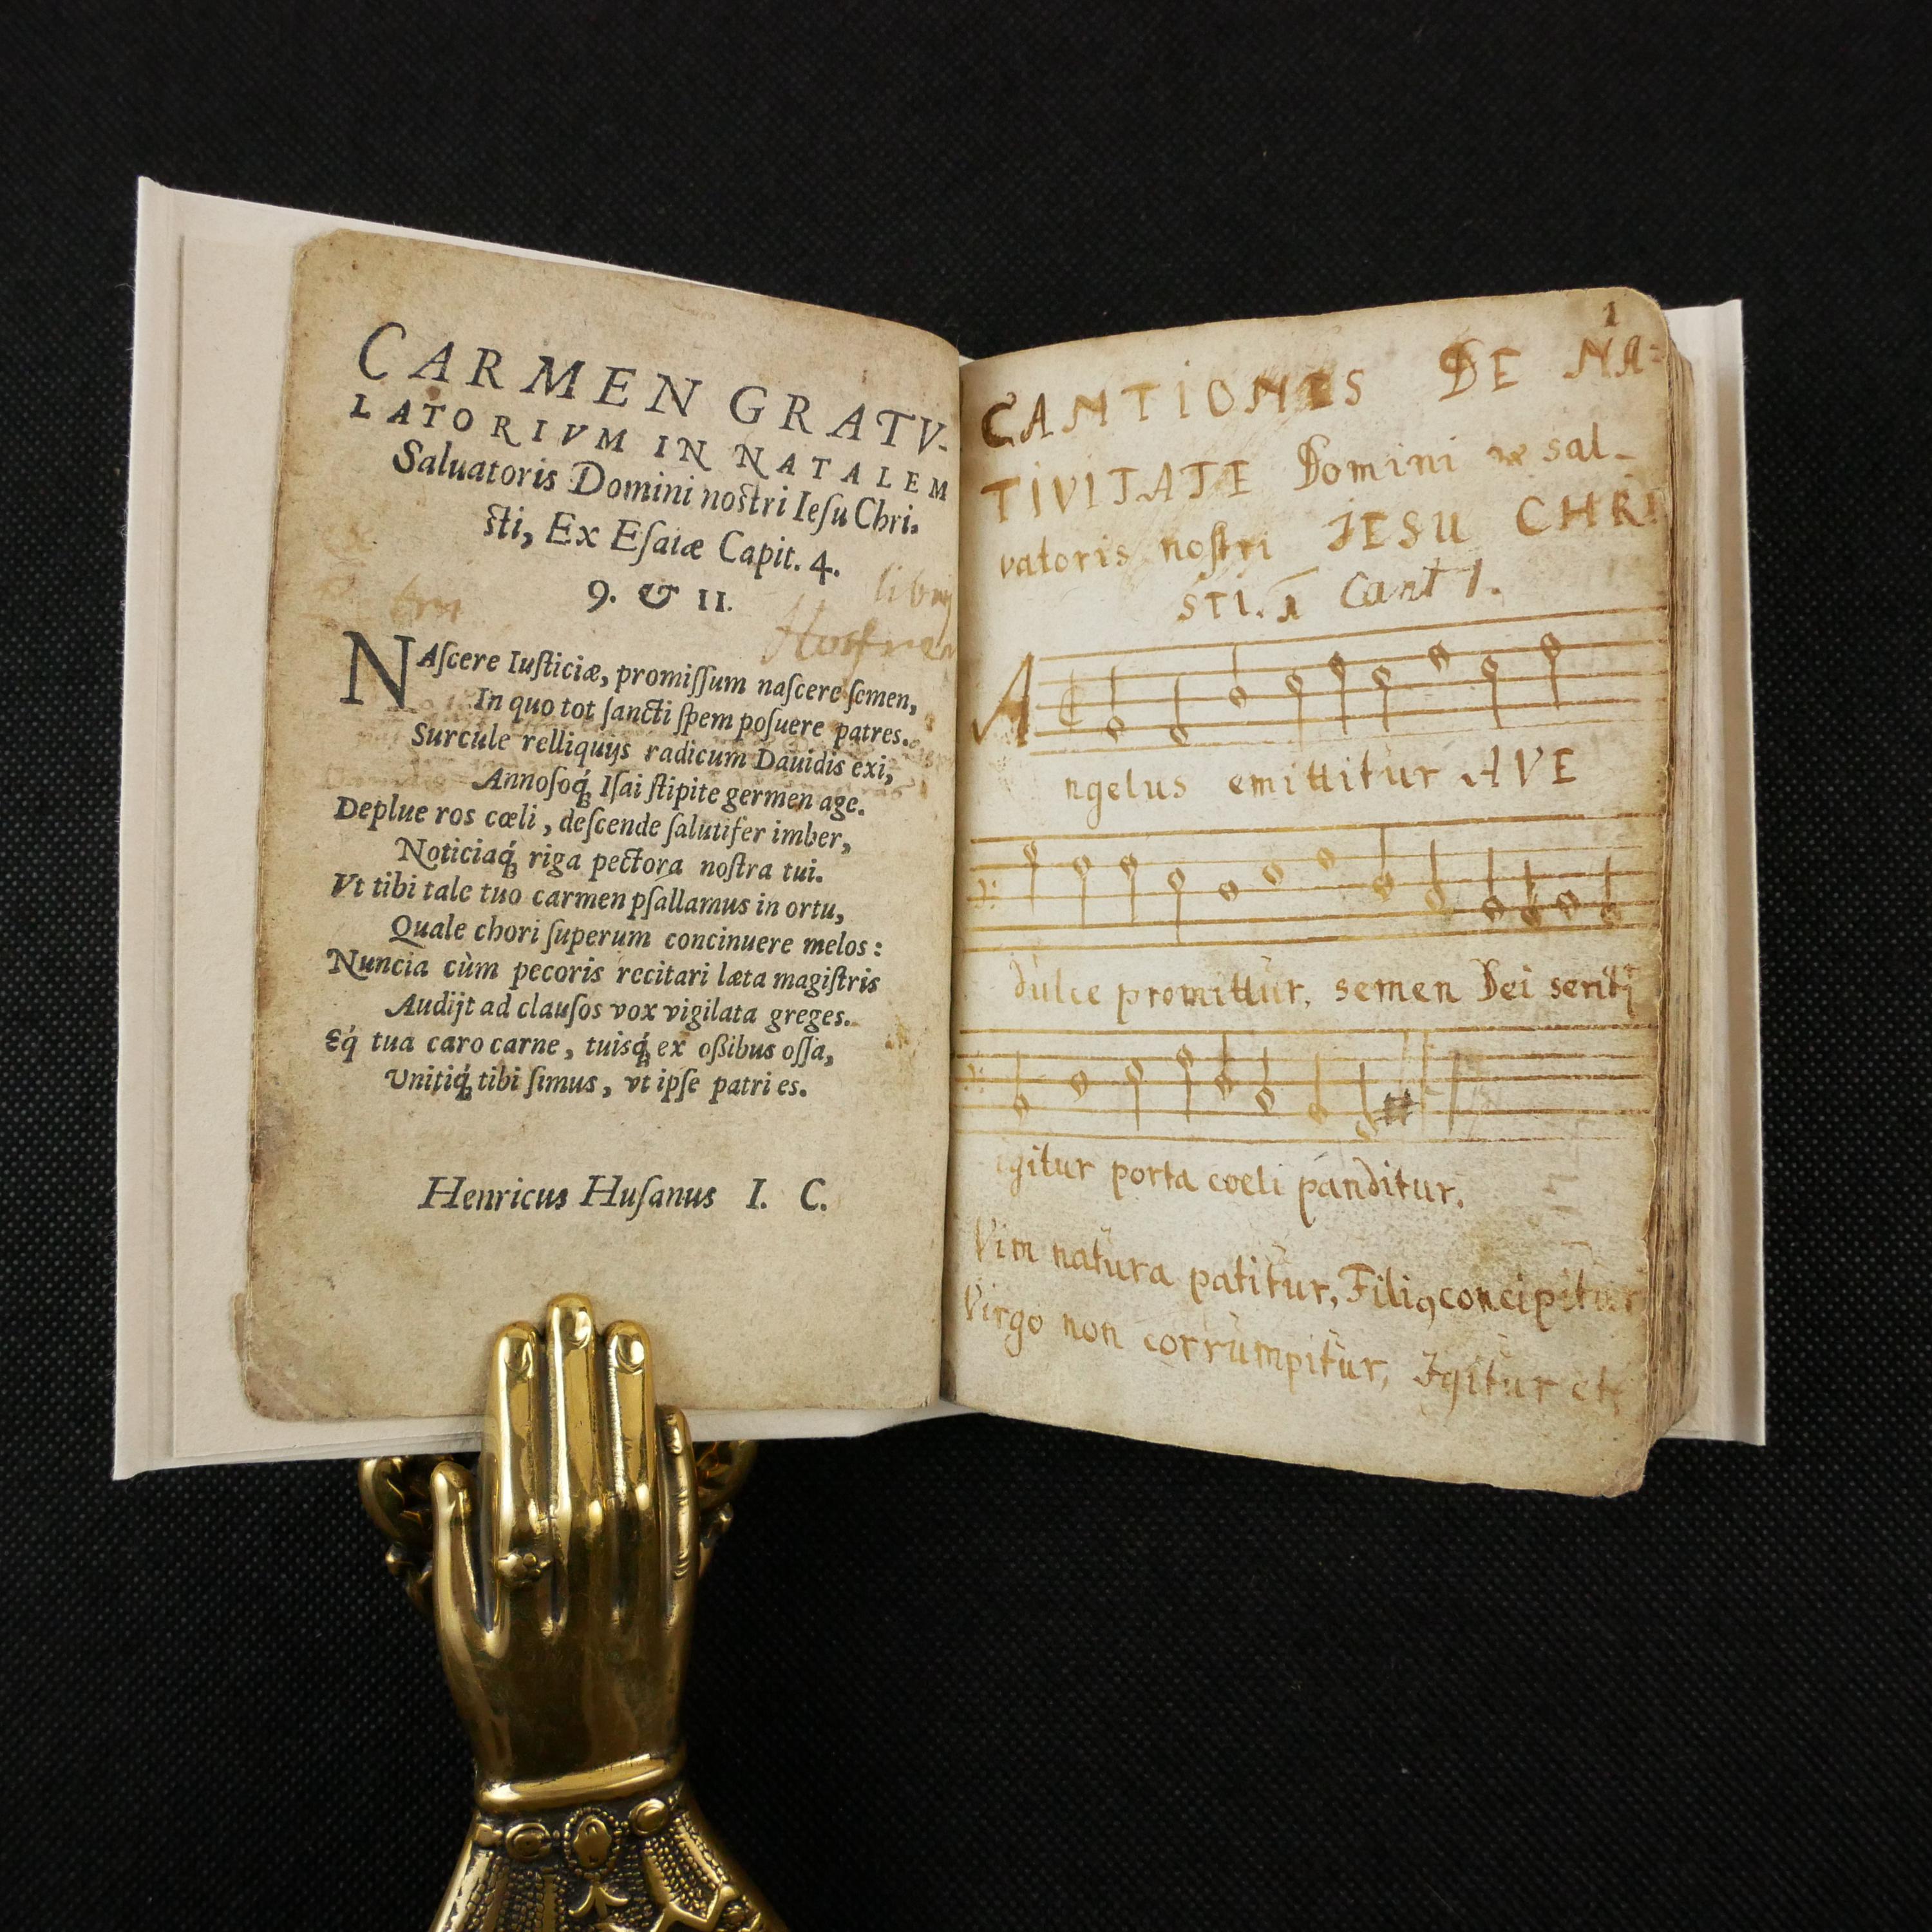 CARMEN GRATV-
LATORIVM IN NATALEM
Saluatoris Domini noſtri Ieſu Chri-
ſti, Ex Eſaiæ Capit. 4.
9. & 11.
NAſcere Iuſticiæ, promiſſum naſcere ſemen,
In quo tot ſancti ſpem poſuere patres.
Surcule relliquijs radicum Dauidis exi,
Annoſoq́ꝫ Iſai ſtipite germen age.
Deplue ros cœli, deſcende ſalutifer imber,
Noticiaq́ꝫ riga pectora noſtra tui.
Vt tibi tale tuo carmen pſallamus in ortu,
Quale chori ſuperum concinuere melos:
Nuncia cùm pecoris recitari læta magiſtris
Audijt ad clauſos vox vigilata greges.
Eq́ tua caro carne, tuisq́ꝫ ex oßibus oſſa,
Unitiq́ꝫ tibi ſimus, vt ipſe patri es.
Henricus Huſanus I. C.
1
CANTIONES DE NA=
TIVITATE Domini sal-
vatoris noſtri JESU CHRI
STI. 1 Cant 1.
A
ngelus emittitur AVE
dulce promittur, semen Dei
igitur porta coeli panditur.
Vim natura patitur, Filiꝯ concipitur
Virgo non corrumpitur, Igitur etc